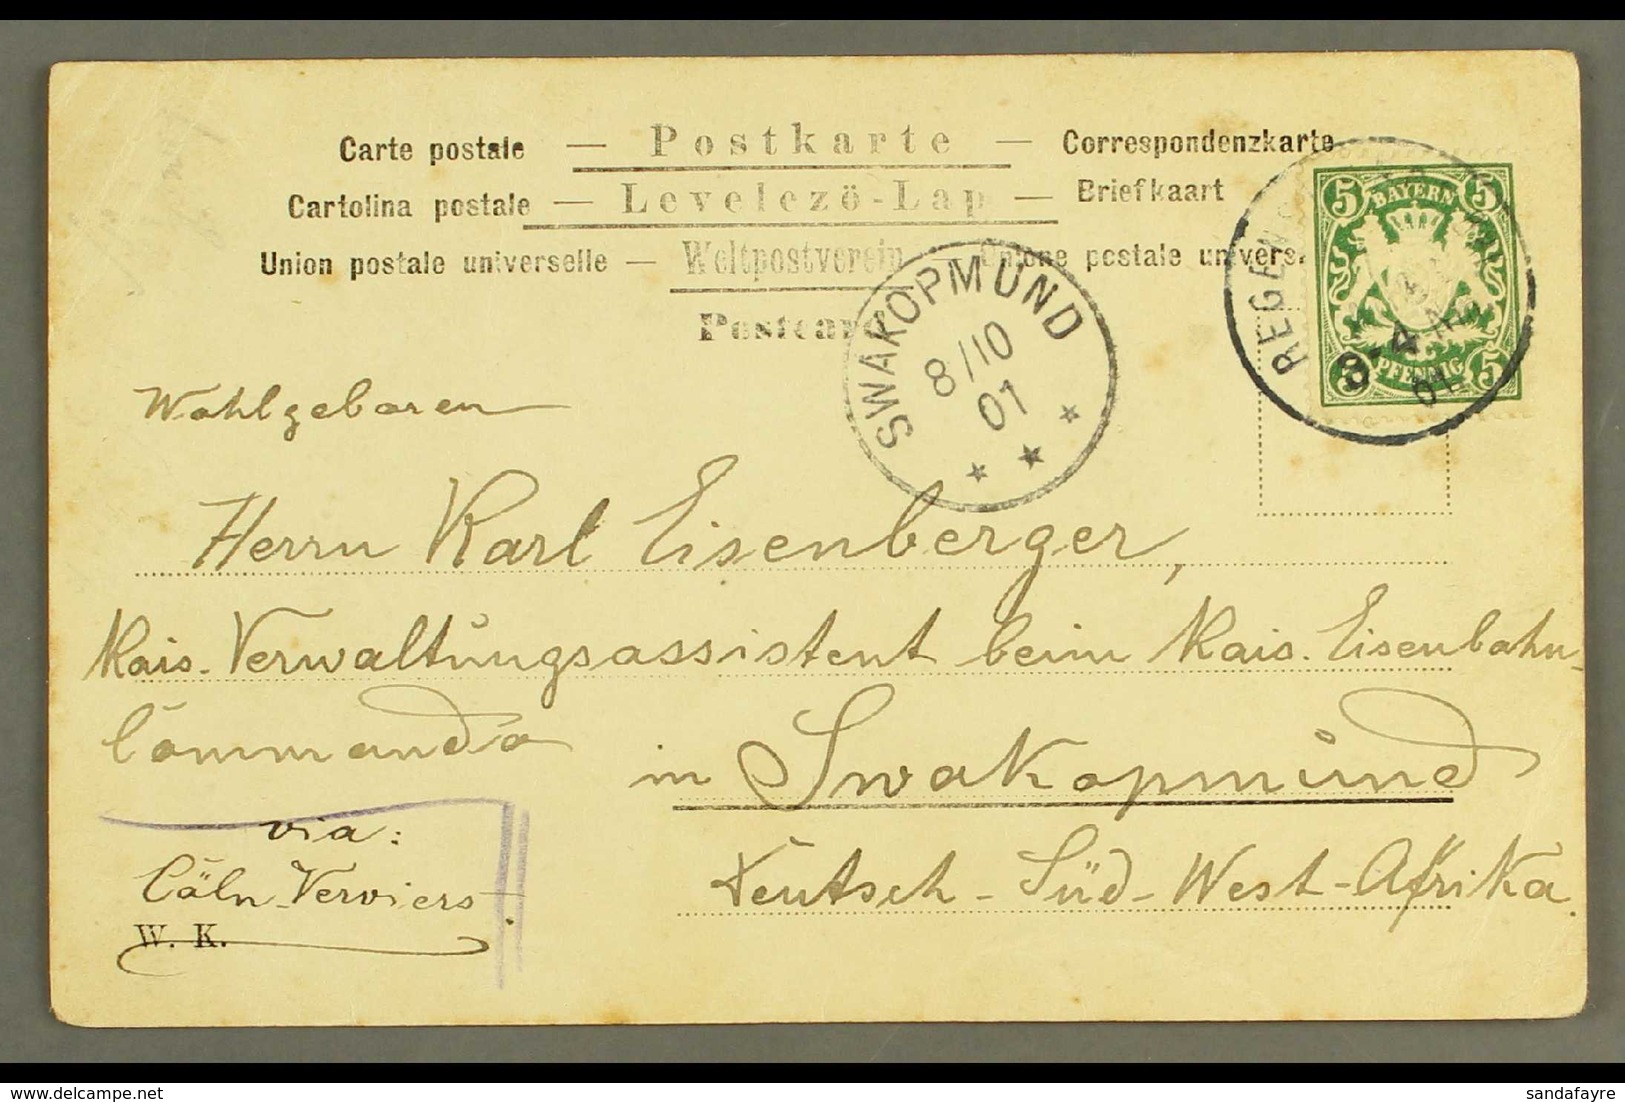 Carte postale — Postkarte — Correspondenzkarte
Cartolina postale — Levelező-Lap — Briefkaart
Union postale universelle — Weltpostverein — Unione postale univers
Postcard
SWAKOPMUND
8/10
01
BAYERN
5 5
5
PFENNIG
8-4
01
Wohlgeboren
Herrn Karl Eisenberger,
Kais. Verwaltungsassistent beim Kais. Eisenbahn-
Commando
in Swakopmund
Deutsch-Süd-West-Afrika.
via:
Cöln-Verviers.
W. K.
delcampe.net
sandafayre